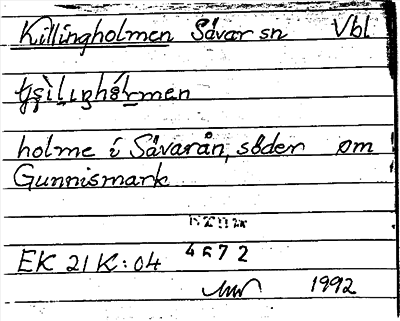 Killingholmen Sävar sn Vbl
holme i Sävarån, söder om
Gunnismark
4672
EK 21 K:04
1992